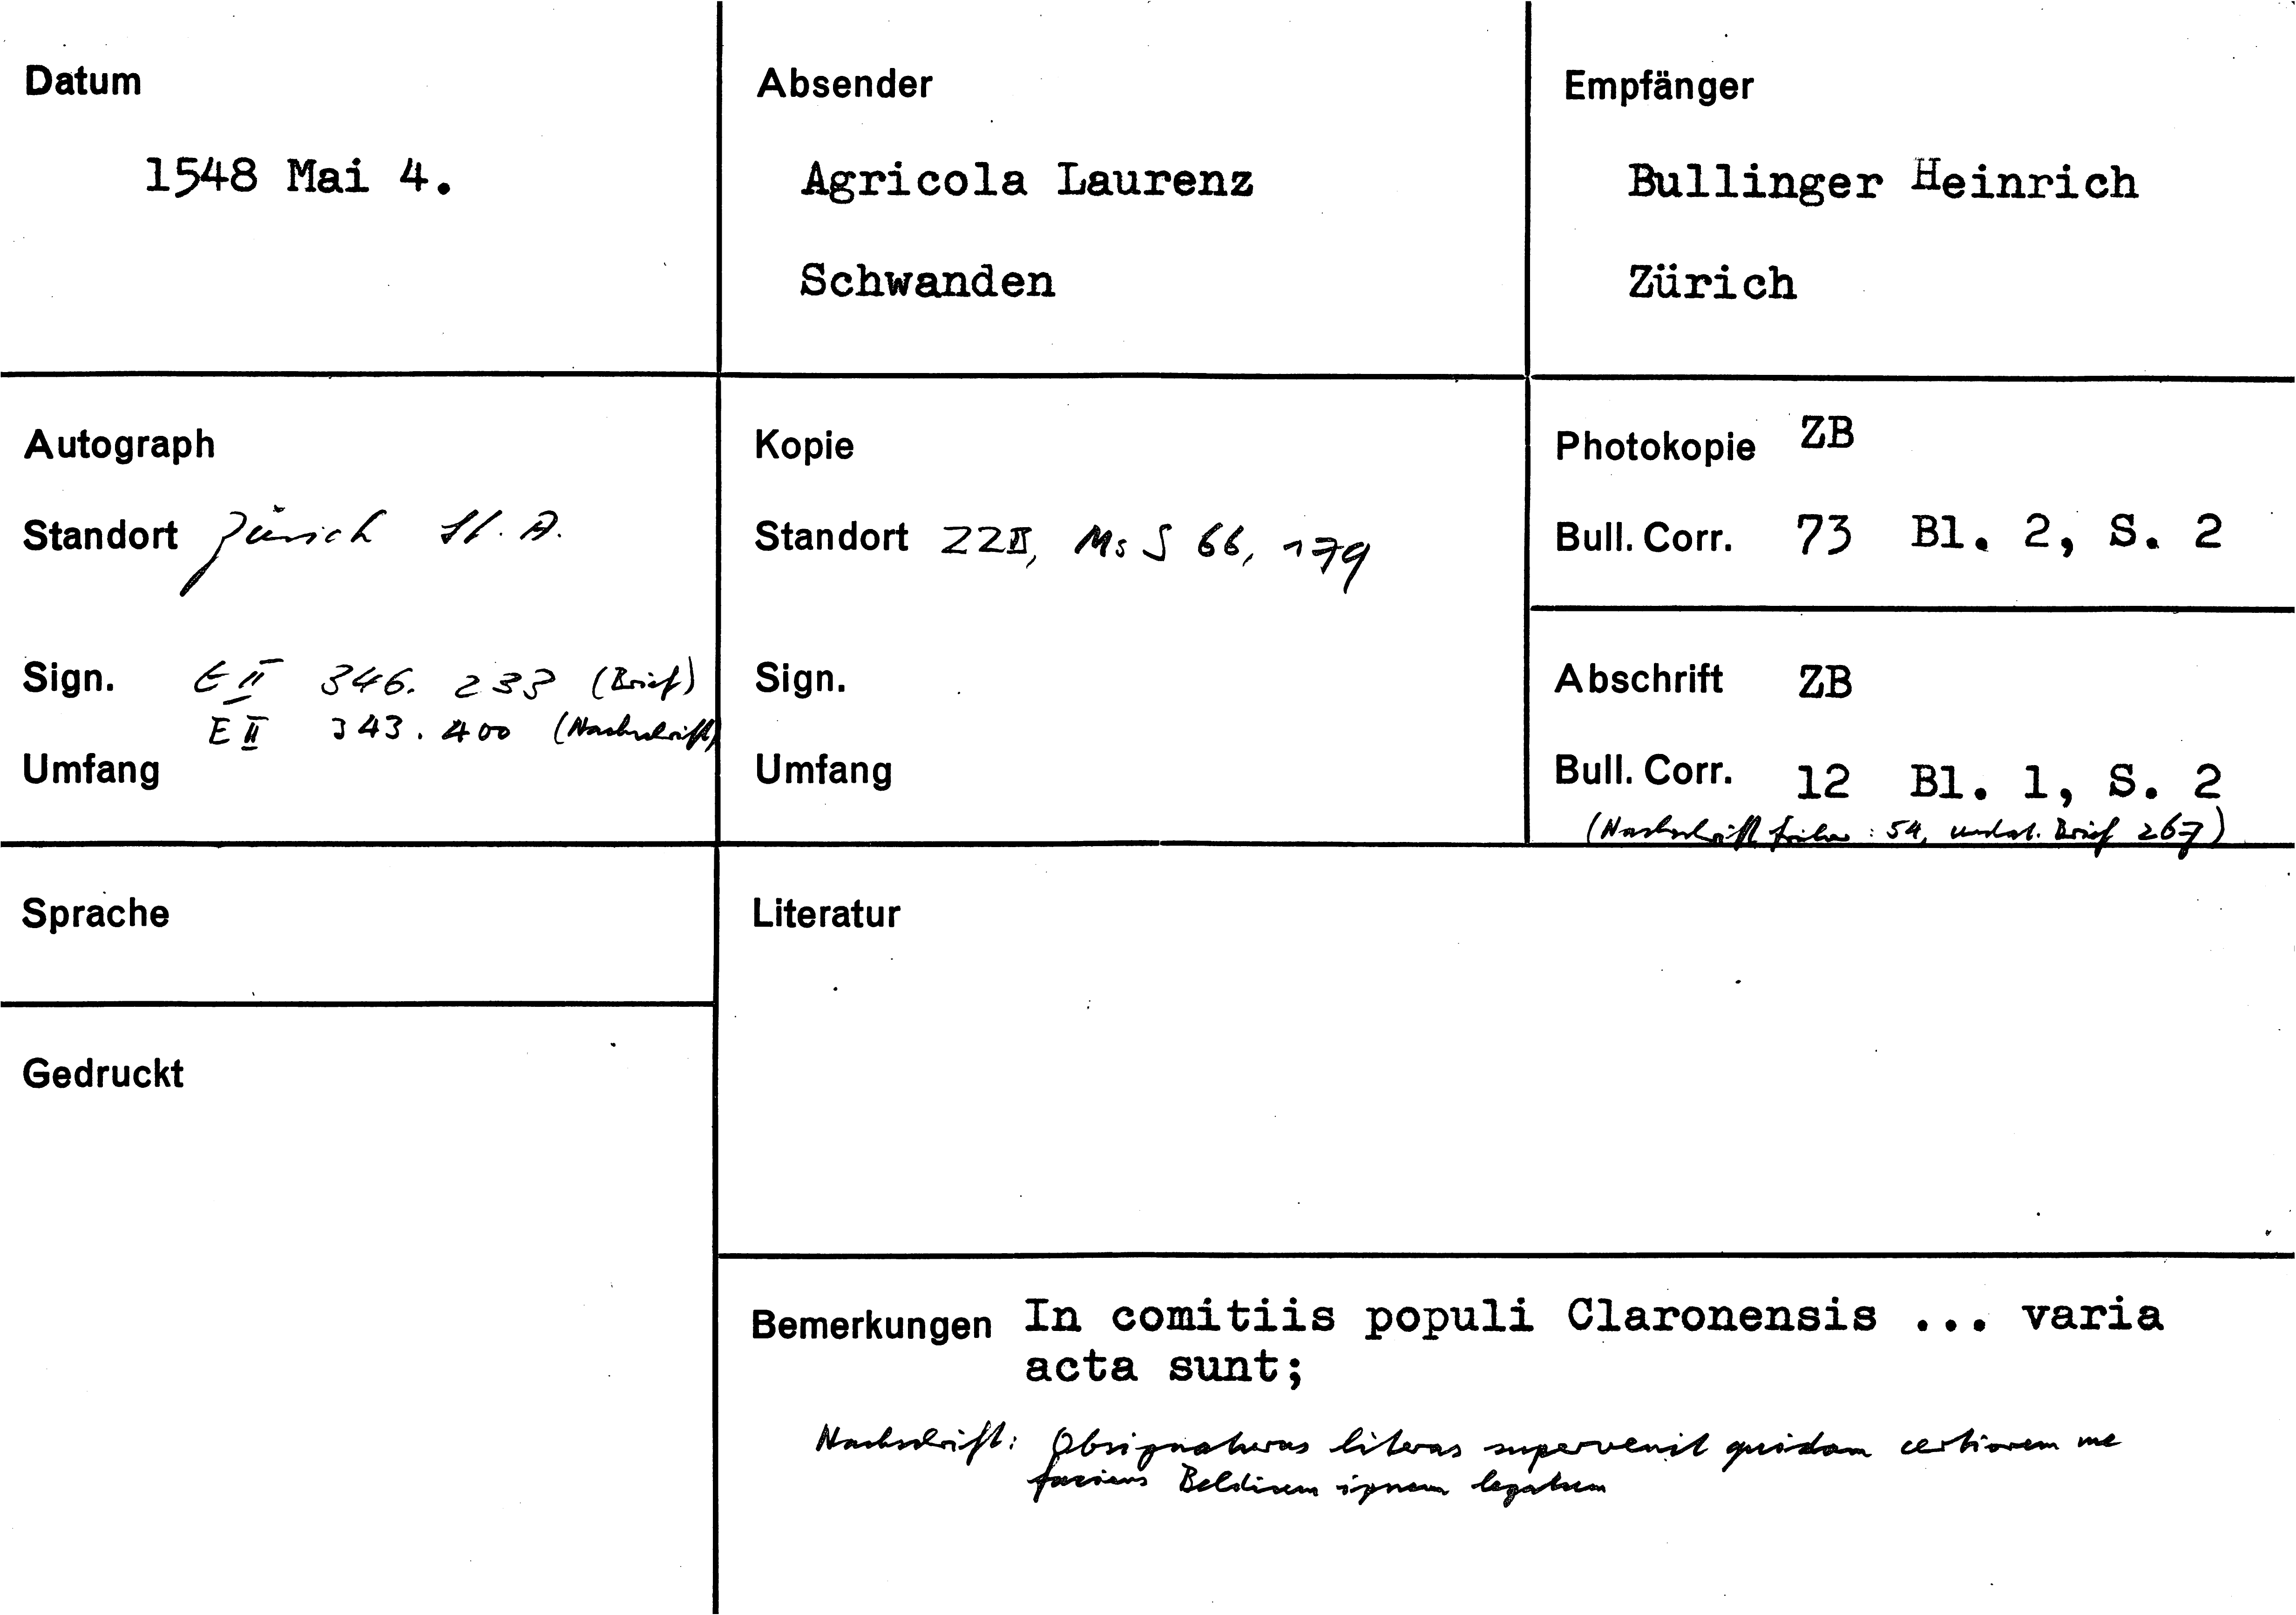 Datum
1548 Mai 4.
Absender
Agricola Laurenz
Schwanden
Empfänger
Bullinger Heinrich
Zürich
Autograph
Standort Zürich St. A.
Sign. E II 346. 233 (Brief)
E II 343. 400 (Nachschrift)
Umfang
Kopie
Standort ZZII, Ms S 66, 179
Sign.
Umfang
Photokopie ZB
Bull. Corr. 73 Bl. 2, S. 2
Abschrift ZB
Bull. Corr. 12 Bl. 1, S. 2
(Nachschrift früher: 54, undat. Brief 267)
Sprache
Gedruckt
Literatur
Bemerkungen In comitiis populi Claronensis ... varia
acta sunt;
Nachschrift: Obsignaturus literas supervenit quidam certiorem me
faciens legatum